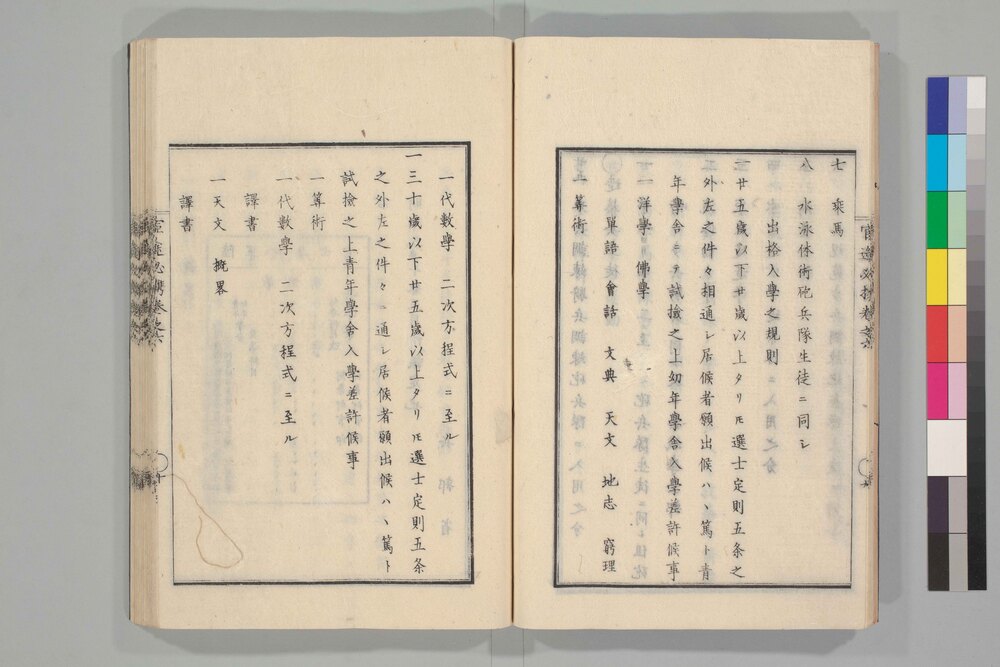 七　乘馬
八　水泳体術砲兵隊生徒ニ同シ
出格入學之規則
一廿五歳以下廿歳以上タリ𪜈選士定則五条之
外左之件々相通シ居候者願出候ハヽ篤ト青
年學舎ニテ試撿之上幼年學舎入學差許候事
一洋學　佛學
單語　會話　文典　天文　地志　窮理
一算術
一代數學　二次方程式ニ至ル
一三十歳以下廿五歳以上タリ𪜈選士定則五条
之外左之件々ニ通シ居候者願出候ハヽ篤ト
試撿之上青年學舎入學差許候事
一算術
一代數學　二次方程式ニ至ル
譯書
一天文　概畧
譯書